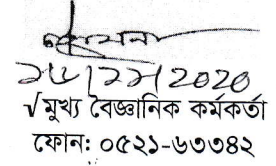 ২৮/১২/2020
√ মুখ্য বৈজ্ঞানিক কর্মকর্তা
ফোন: ০৫২১-৬৩৩৪২